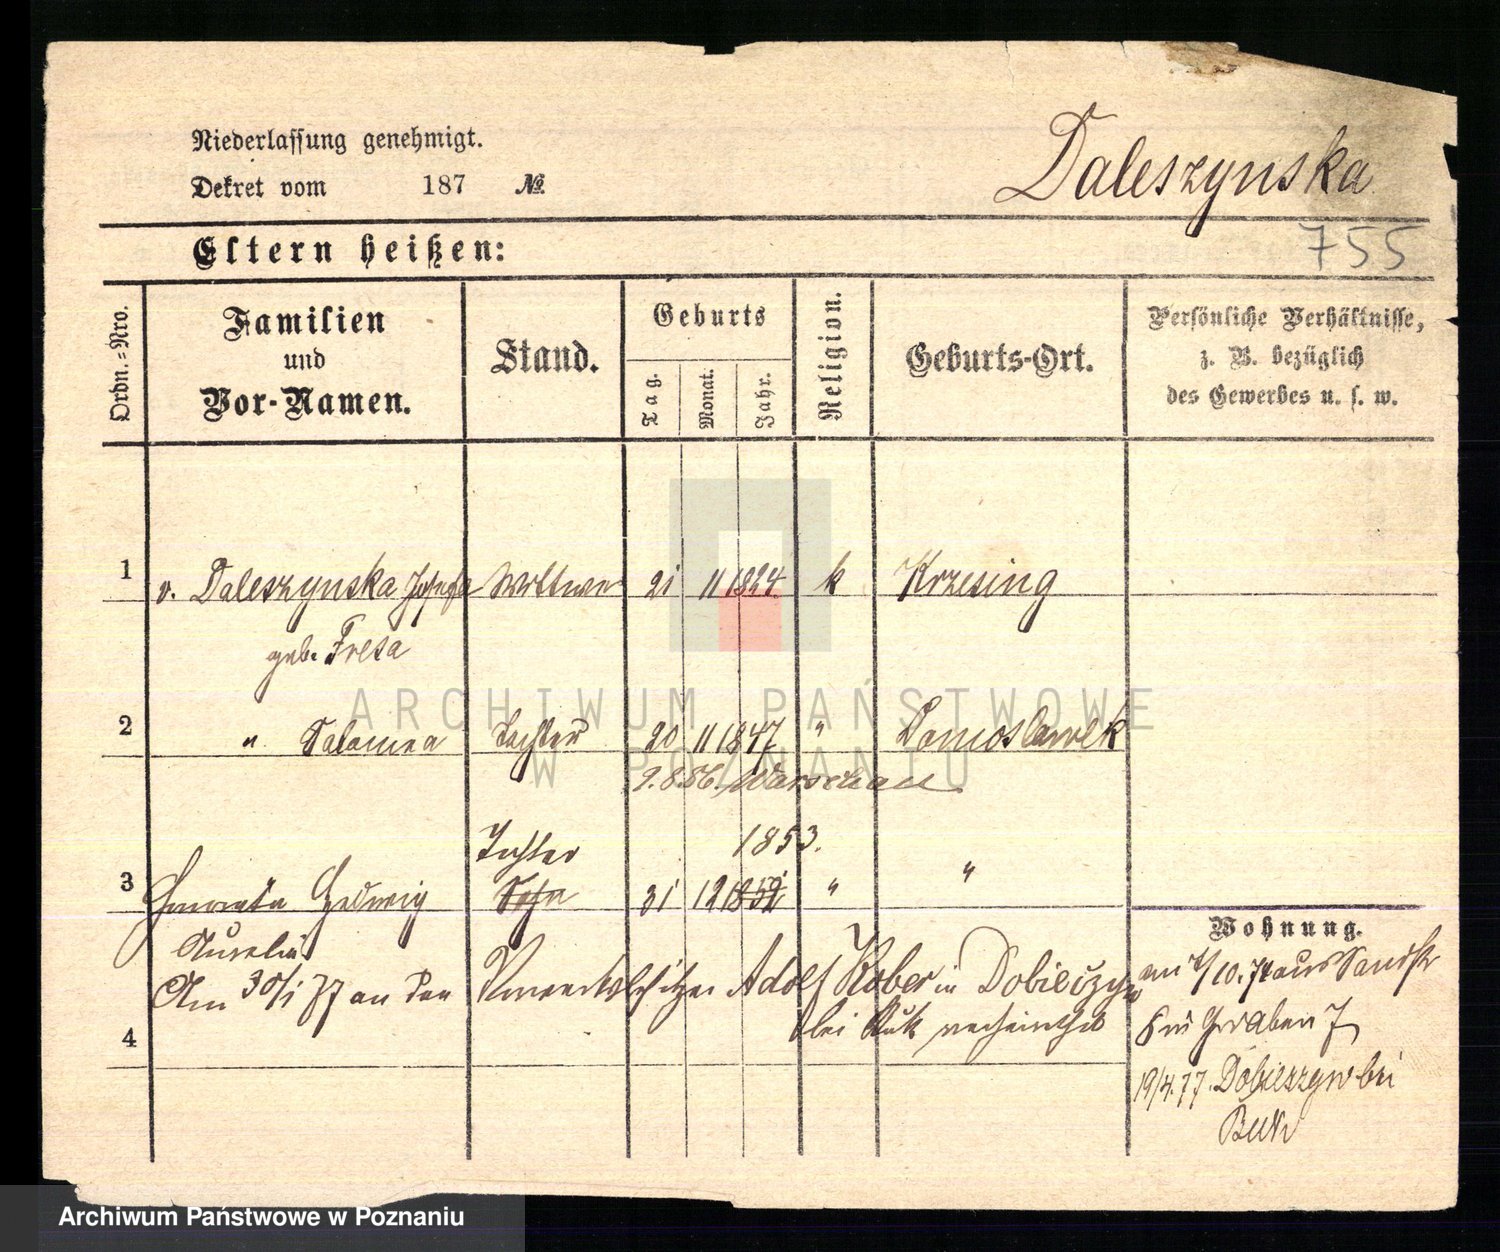 Niederlassung genehmigt.
Dekret vom 187 №
Daleszynska
Eltern heißen:
755
Ordn.=Nro.
Familien
und
Vor-Namen.
Stand.
Geburts
Tag.
Monat.
Jahr.
Religion.
Geburts-Ort.
Persönliche Verhältnisse,
z. B. bezüglich
des Gewerbes u. s. w.
1 v. Daleszynska Josefa Wittwe 21 11 1824 k Krzesing
geb. Fresa
2 " Salomea Tochter 20 11 1847 " Domoslawek
9.8.86. Warschau
Tochter 1853.
3 Hedwig Sohn 31 12 1852 " "
Wohnung.
Aurelia
Am 30/1 77 an den Adolf Kober in Dobieczyn
bei Buk verheirathet
am 2/10.74 aus Sandstr
8 in Graben 7
4
19/4.77. Dobieszyn bei
Buk
ARCHIWUM PAŃSTWOWE
W POZNANIU
Archiwum Państwowe w Poznaniu